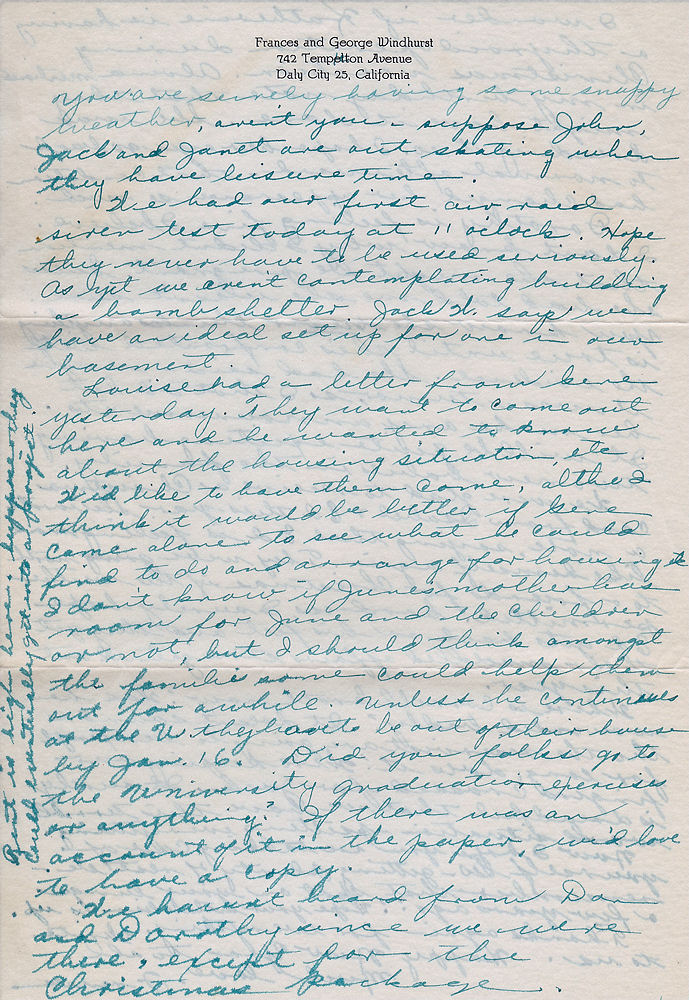 Frances and George Windhurst
742 Templeton Avenue
Daly City 25, California
You are surely having some snappy
weather, aren't you - suppose John,
Jack and Janet are out skating when
they have leisure time.
We had our first air raid
siren test today at 11 o'clock. Hope
they never have to be used seriously.
As yet we aren't contemplating building
a bomb shelter. Jack W. says we
have an ideal set up for one in our
basement.
Louise had a letter from Gene
yesterday. They want to come out
here and he wanted to know
about the housing situation, etc.
We'd like to have them come, altho I
think it would be better if Gene
came alone to see what he could
find to do and arrange for housing etc
I don't know if June's mother has
room for June and the children
or not, but I should think amongst
the families some could help them
out for awhile. Unless he continues
at the U they have to be out of their house
by Jan. 16. Did you folks go to
the University graduation exercises
or anything? If there was an
account of it in the paper, we'd love
to have a copy.
We haven't heard from Don
and Dorothy since we were
there, except for the
Christmas package.
Rent is high here. Suppose they
could eventually get into a project.